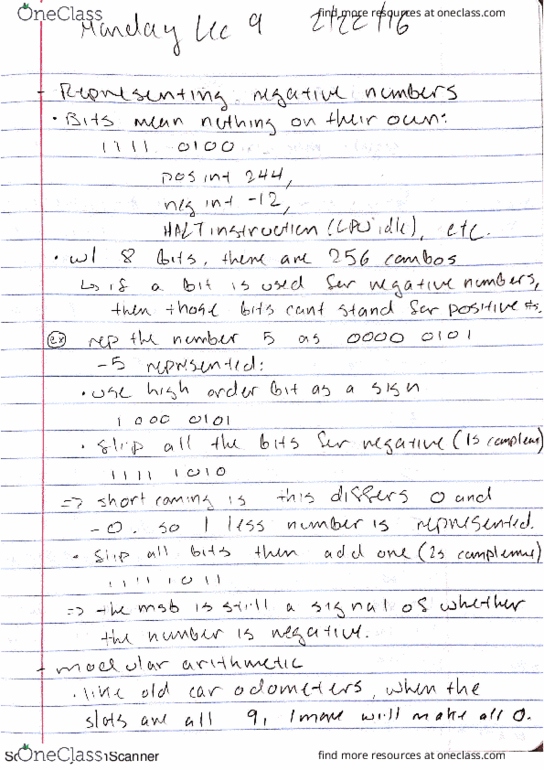 OneClass
find more resources at oneclass.com
Monday Lec 9 2/22/16
- Representing negative numbers
• Bits mean nothing on their own:
1111 0100
pos int 244,
neg int -12,
HALT instruction (CPU idle), etc.
• w/ 8 bits, there are 256 combos
↳ if a bit is used for negative numbers,
then those bits cant stand for positive #s.
(ex) rep the number 5 as 0000 0101
-5 represented:
• use high order bit as a sign
1000 0101
• flip all the bits for negative (1s complem)
1111 1010
=> short coming is this differs 0 and
-0. so 1 less number is represented.
• flip all bits then add one (2s complemen)
1111 1011
=> the msb is still a signal of whether
the number is negative.
- modular arithmetic
• like old car odometers, when the
slots are all 9, 1 more will make all 0.
OneClass
Scanner
find more resources at oneclass.com